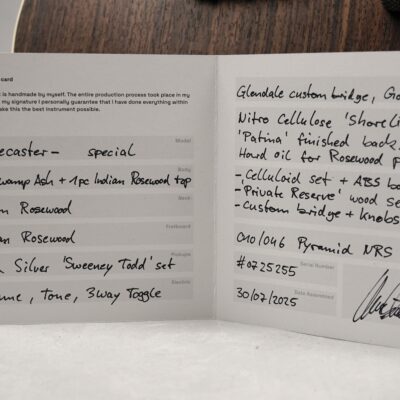 card
is handmade by myself. The entire production process took place in my
my signature I personally guarantee that I have done everything within
ake this the best instrument possible.
Model
ecaster - special
Body
wamp Ash + 1pc Indian Rosewood top
Neck
n Rosewood
Fretboard
an Rosewood
Pickups
Silver 'Sweeney Todd' set
Electric
ume, Tone, 3way Toggle
Glendale custom bridge, Go
Nitro Cellulose 'Shoreli
'Patina' finished back.
Hard oil for Rosewood p
- Celluloid set + ABS bo
- 'Private Reserve' wood se
- Custom bridge + knobs
010/046 Pyramid NRS
Serial Number
#0725255
Date Assembled
30/07/2025